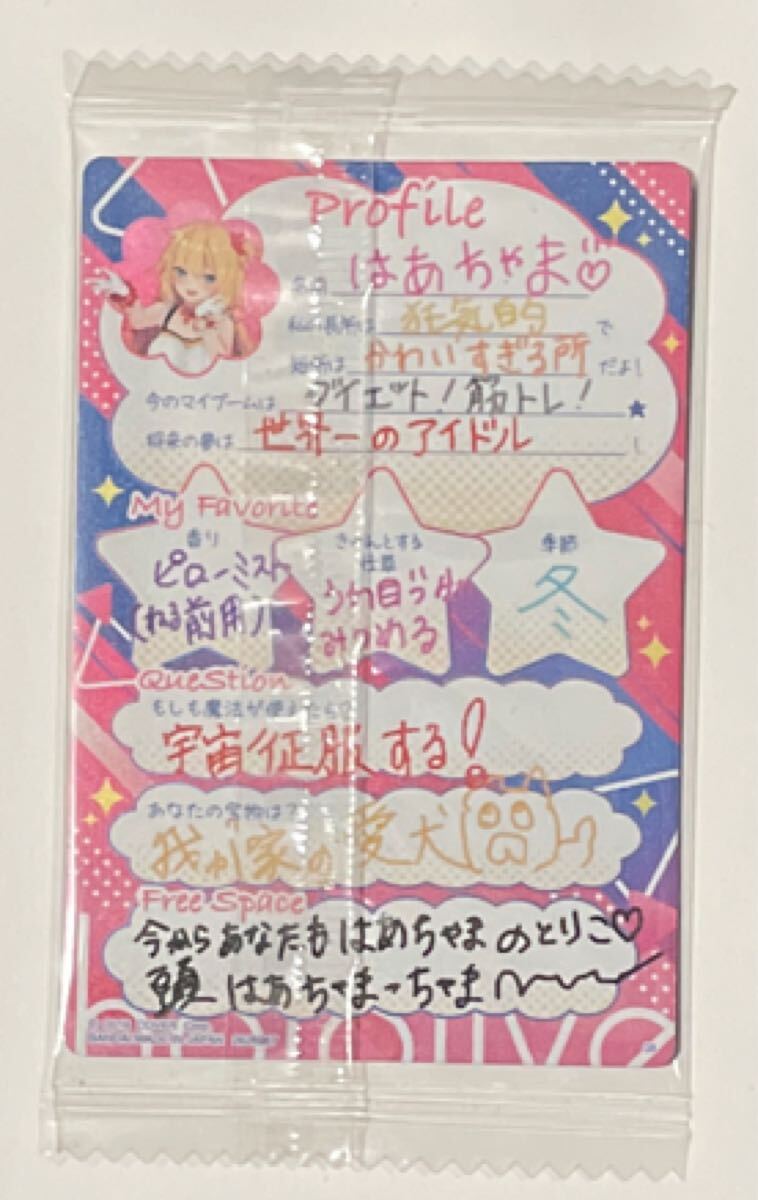 Profile
名前 はあちゃま♡
私の長所は 狂気的 で
短所は かわいすぎる所 だよ!
今のマイブームは ダイエット!筋トレ! ★
将来の夢は 世界一のアイドル !
My Favorite
香り
ピローミスト
(ねる前用)
きゅんとする
仕草
うわ目づかい
みつめる
季節
冬
Question
もしも魔法が使えたら?
宇宙征服する!
あなたの宝物は?
我が家の愛犬
Free Space
今からあなたもはあちゃまのとりこ♡
頭はあちゃまっちゃま〜
COVER Corp.
BANDAI MADE IN JAPAN
hololive